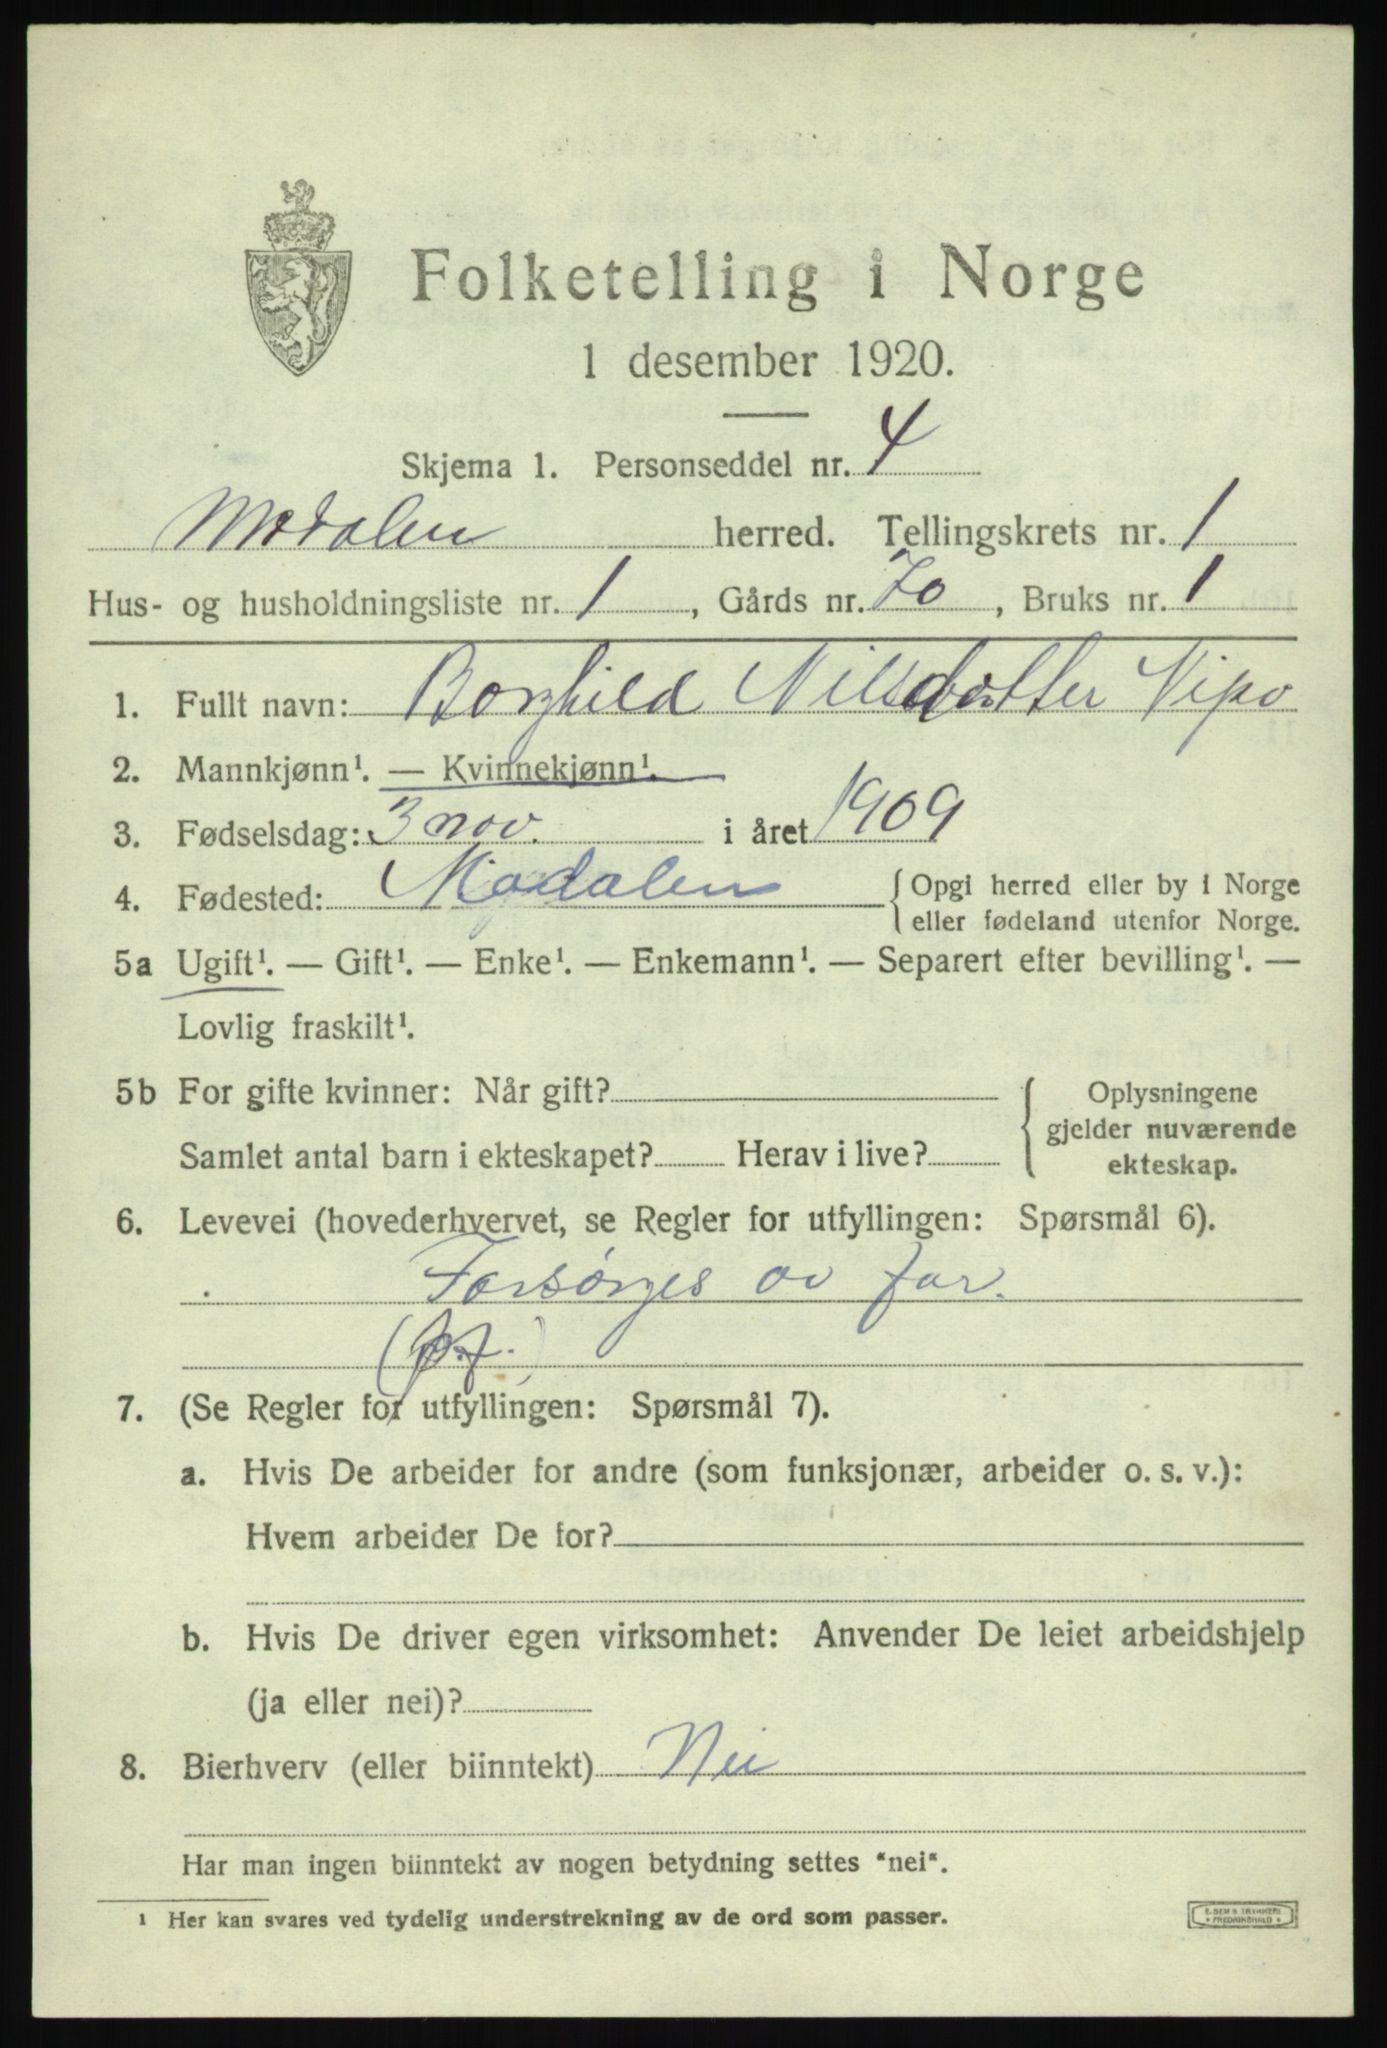 Folketelling i Norge
1 desember 1920.
Skjema 1. Personseddel nr. 4
Modalen herred. Tellingskrets nr. 1
Hus- og husholdningsliste nr. 1, Gårds nr. 70, Bruks nr. 1
1. Fullt navn: Borghild Nilsdotter Vipo
2. Mannkjønn¹. — Kvinnekjønn¹.
3. Fødselsdag: 3 nov. i året 1909
4. Fødested: Modalen { Opgi herred eller by i Norge
eller fødeland utenfor Norge.
5a Ugift¹. — Gift¹. — Enke¹. — Enkemann¹. — Separert efter bevilling¹. —
Lovlig fraskilt¹.
5b For gifte kvinner: Når gift? { Oplysningene
gjelder nuværende
Samlet antal barn i ekteskapet? Herav i live? ekteskap.
6. Levevei (hovederhvervet, se Regler for utfyllingen: Spørsmål 6).
Forsørges av far.
7. (Se Regler for utfyllingen: Spørsmål 7).
a. Hvis De arbeider for andre (som funksjonær, arbeider o. s. v.):
Hvem arbeider De for?
b. Hvis De driver egen virksomhet: Anvender De leiet arbeidshjelp
(ja eller nei)?
8. Bierhverv (eller biinntekt) Nei
Har man ingen biinntekt av nogen betydning settes "nei".
¹ Her kan svares ved tydelig understrekning av de ord som passer.